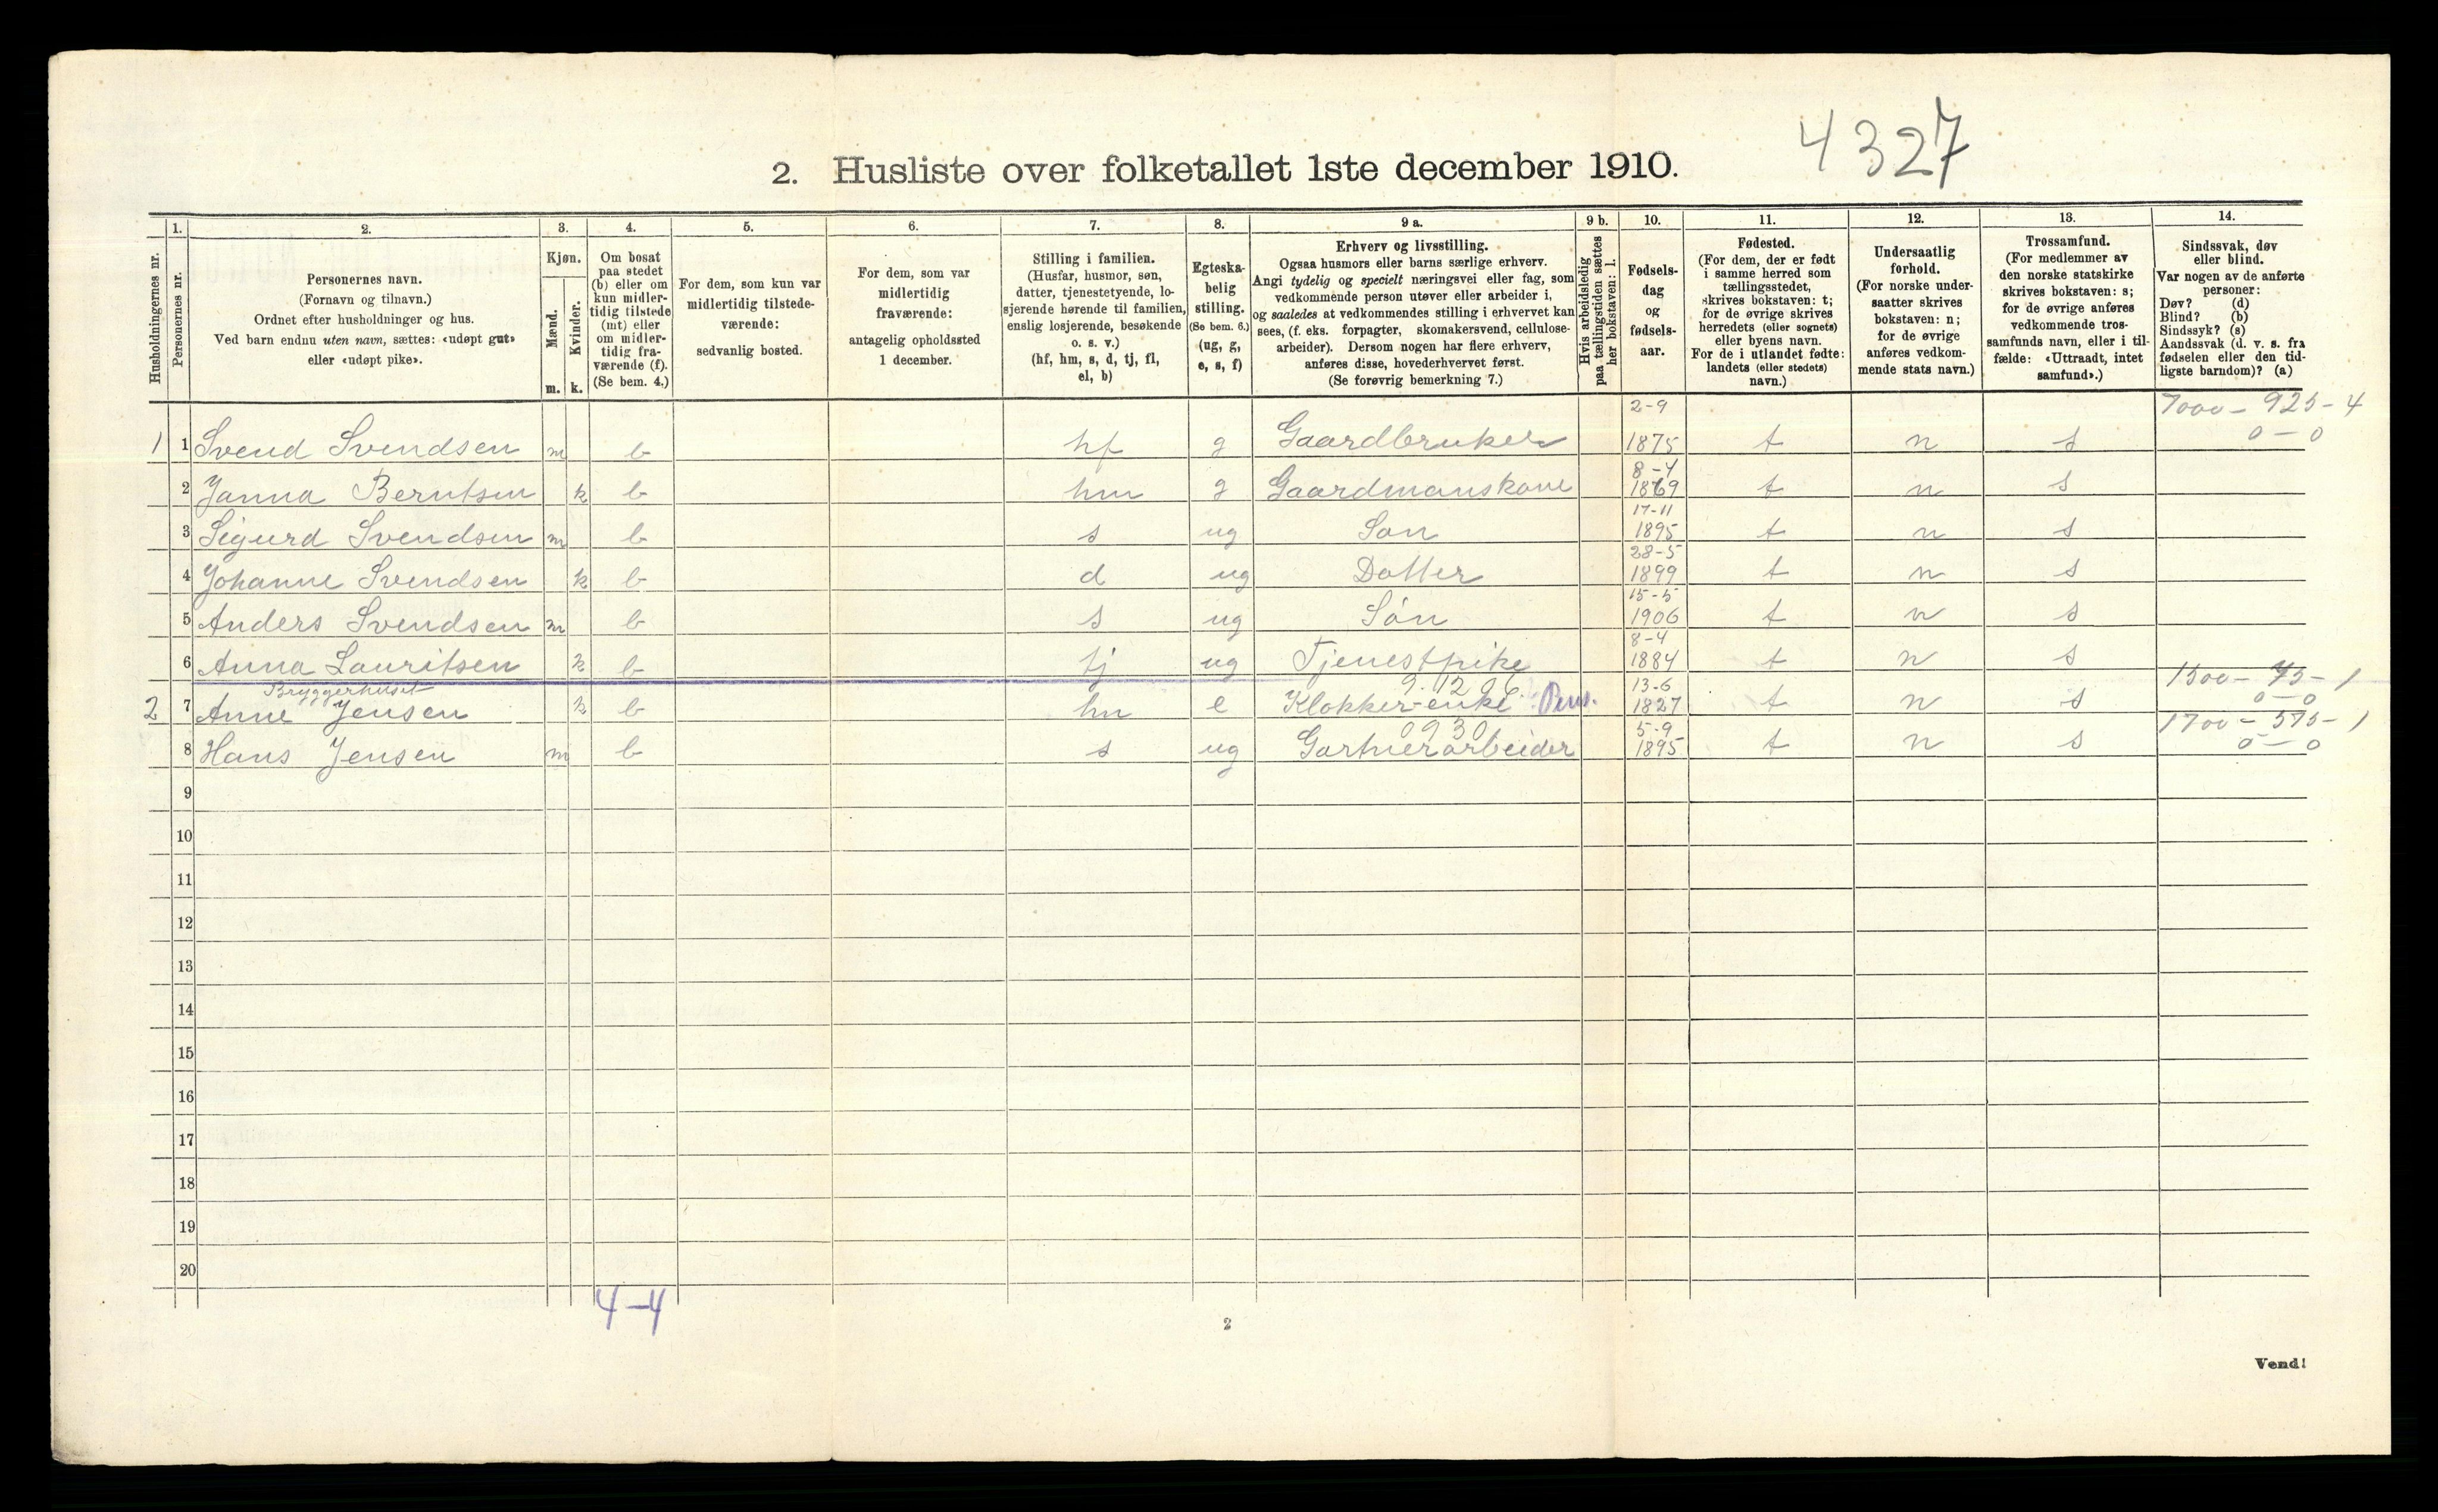 4327
2. Husliste over folketallet 1ste december 1910.
Husholdningernes nr.
1.
Personernes nr.
2.
Personernes navn.
(Fornavn og tilnavn.)
Ordnet efter husholdninger og hus.
Ved barn endnu uten navn, sættes: «udøpt gut»
eller «udøpt pike».
3.
Kjøn.
Mænd.
Kvinder.
m. k.
4.
Om bosat
paa stedet
(b) eller om
kun midler-
tidig tilstede
(mt) eller
om midler-
tidig fra-
værende (f).
(Se bem. 4.)
5.
For dem, som kun var
midlertidig tilstede-
værende:
sedvanlig bosted.
6.
For dem, som var
midlertidig
fraværende:
antagelig opholdssted
1 december.
7.
Stilling i familien.
(Husfar, husmor, søn,
datter, tjenestetyende, lo-
sjerende hørende til familien,
enslig losjerende, besøkende
o. s. v.)
(hf, hm, s, d, tj, fl,
el, b)
8.
Egteska-
belig
stilling.
(Se bem. 6.)
(ug, g,
e, s, f)
9 a.
Erhverv og livsstilling.
Ogsaa husmors eller barns særlige erhverv.
Angi tydelig og specielt næringsvei eller fag, som
vedkommende person utøver eller arbeider i,
og saaledes at vedkommendes stilling i erhvervet kan
sees, (f. eks. forpagter, skomakersvend, cellulose-
arbeider). Dersom nogen har flere erhverv,
anføres disse, hovederhvervet først.
(Se forøvrig bemerkning 7.)
9 b.
Hvis arbeidsledig
paa tællingstiden sættes
her bokstaven: l.
10.
Fødsels-
dag
og
fødsels-
aar.
11.
Fødested.
(For dem, der er født
i samme herred som
tællingsstedet,
skrives bokstaven: t;
for de øvrige skrives
herredets (eller sognets)
eller byens navn.
For de i utlandet fødte:
landets (eller stedets)
navn.)
12.
Undersaatlig
forhold.
(For norske under-
saatter skrives
bokstaven: n;
for de øvrige
anføres vedkom-
mende stats navn.)
13.
Trossamfund.
(For medlemmer av
den norske statskirke
skrives bokstaven: s;
for de øvrige anføres
vedkommende tros-
samfunds navn, eller i til-
fælde: «Uttraadt, intet
samfund».)
14.
Sindssvak, døv
eller blind.
Var nogen av de anførte
personer:
Døv? (d)
Blind? (b)
Sindssyk? (s)
Aandssvak (d. v. s. fra
fødselen eller den tid-
ligste barndom)? (a)
2-9 7000 - 925 - 4
1 1 Svend Svendsen m b hf g Gaardbruker 1875 t n s 0 - 0
8-4
2 Janna Berntsen k b hm g Gaardmanskone 1869 t n s
17-11
3 Sigurd Svendsen m b s ug Søn 1895 t n s
28-5
4 Johanne Svendsen k b d ug Datter 1899 t n s
15-5
5 Anders Svendsen m b s ug Søn 1906 t n s
8-4
6 Anna Lauritsen k b tj ug Tjenestpike 1884 t n s
Bryggerhuset 13-6 1500 - 75 - 1
2 7 Anne Jensen k b hm e Klokker-enke Pens. 1827 t n s 0 - 0
0930 5-9 1700 - 575 - 1
8 Hans Jensen m b s ug Gartnerarbeider 1895 t n s 0 - 0
9
10
11
12
13
14
15
16
17
18
19
20
4-4
2
Vend!